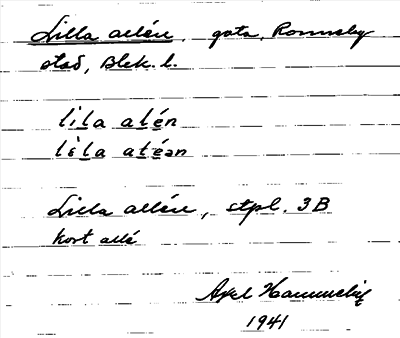 Lilla allén, gata, Ronneby
stad, Blek. l.
lila alén
lila aléan
Lilla allén, stpl. 3B
kort allé
Axel
1941